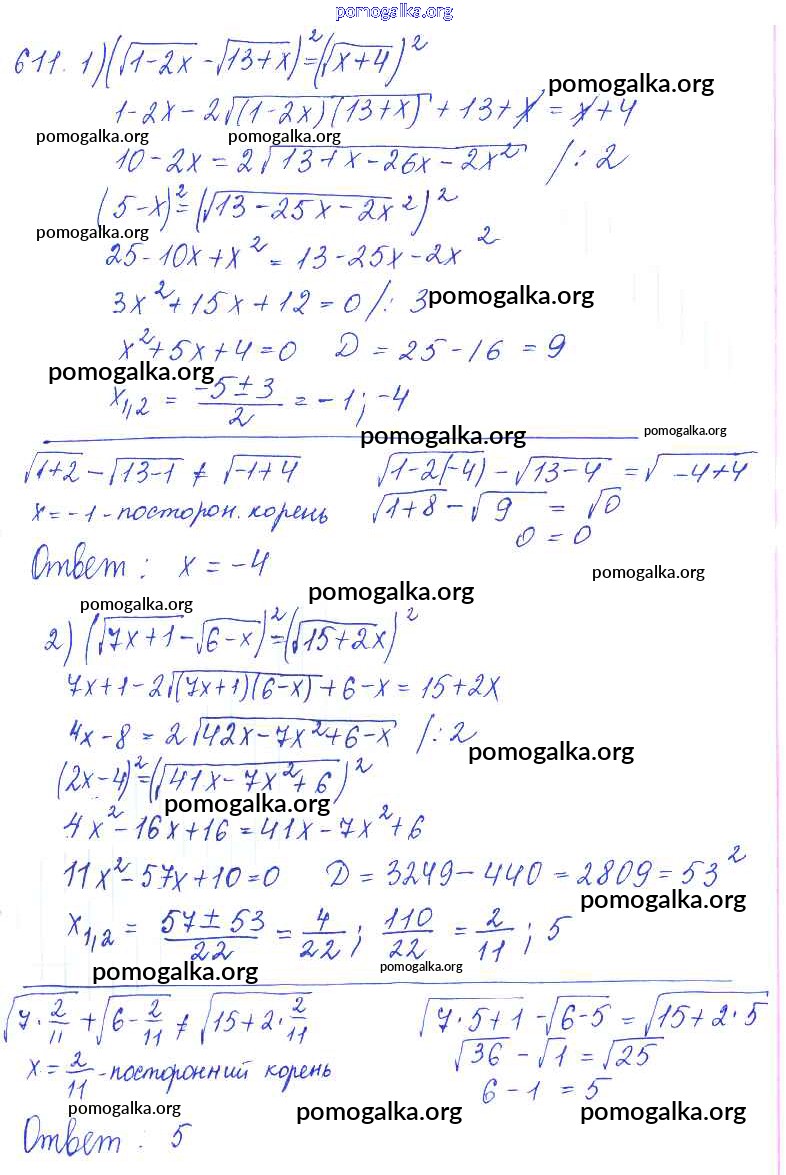 pomogalka.org
611. 1) (√(1-2x) - √(13+x))² = (√(x+4))²
pomogalka.org
1-2x-2√((1-2x)(13+x)) + 13+x = x+4
pomogalka.org pomogalka.org
10-2x = 2√(13+x-26x-2x²) /:2
(5-x)² = (√(13-25x-2x²))²
pomogalka.org
25-10x+x² = 13-25x-2x²
3x²+15x+12=0 /:3 pomogalka.org
x²+5x+4=0 D = 25-16 = 9
pomogalka.org
x₁,₂ = (-5±3)/2 = -1; -4
pomogalka.org pomogalka.org
√(1+2) - √(13-1) ≠ √(-1+4) √(1-2(-4)) - √(13-4) = √(-4+4)
x=-1-посторон. корень √(1+8) - √9 = √0
0 = 0
Ответ: x = -4
pomogalka.org
pomogalka.org pomogalka.org
2) (√(7x+1) - √(6-x))² = (√(15+2x))²
7x+1-2√((7x+1)(6-x)) + 6-x = 15+2x
4x-8 = 2√(42x-7x²+6-x) /:2
pomogalka.org
(2x-4)² = (√(41x-7x²+6))²
pomogalka.org
4x²-16x+16 = 41x-7x²+6
11x²-57x+10=0 D = 3249-440 = 2809 = 53²
pomogalka.org
x₁,₂ = (57±53)/22 = 4/22; 110/22 = 2/11; 5
pomogalka.org pomogalka.org
√(7·2/11) + √(6-2/11) ≠ √(15+2·2/11) √(7·5+1) - √(6-5) = √(15+2·5)
x = 2/11 -посторонний корень √36 - √1 = √25
6-1 = 5
pomogalka.org pomogalka.org pomogalka.org
Ответ: 5